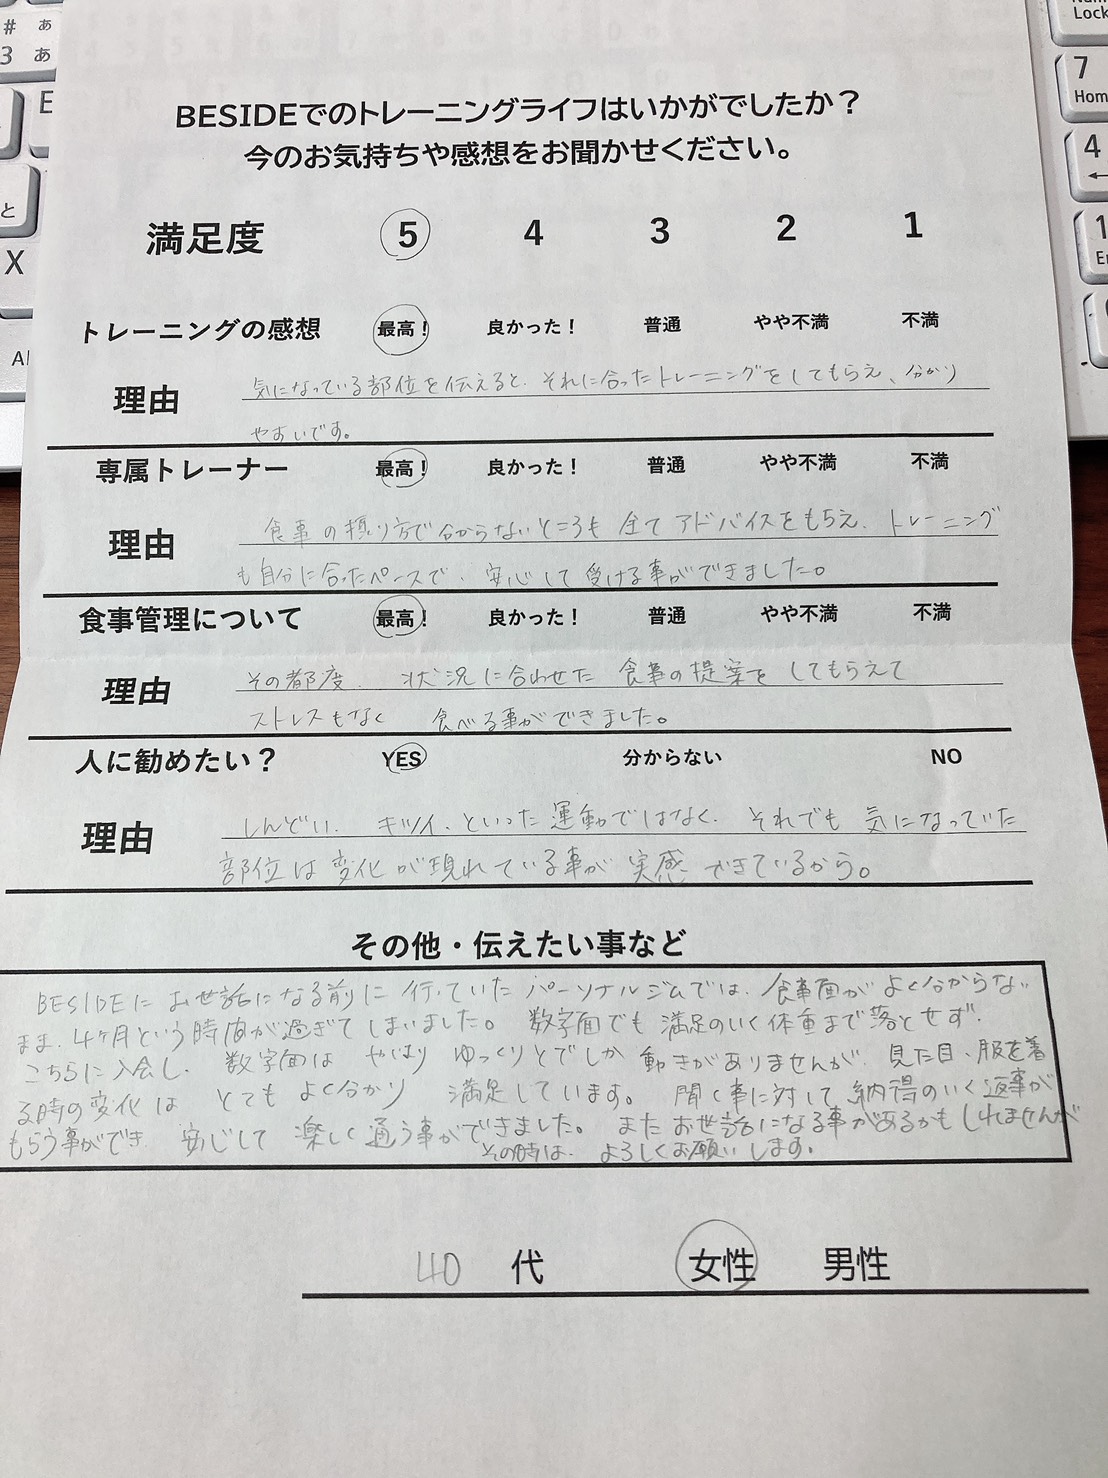 # あ
3 あ
E
と
X
Al
Lock
7
Home
4
←
1
BESIDEでのトレーニングライフはいかがでしたか？
今のお気持ちや感想をお聞かせください。
満足度 5 4 3 2 1
トレーニングの感想 最高！ 良かった！ 普通 やや不満 不満
理由 気になっている部位を伝えると、それに合ったトレーニングをしてもらえ、分かり
やすいです。
専属トレーナー 最高！ 良かった！ 普通 やや不満 不満
理由 食事の摂り方で分からないところも全てアドバイスをもらえ、トレーニング
も自分に合ったペースで、安心して受ける事ができました。
食事管理について 最高！ 良かった！ 普通 やや不満 不満
理由 その都度、状況に合わせた食事の提案をしてもらえて
ストレスもなく 食べる事ができました。
人に勧めたい？ YES 分からない NO
理由 しんどい、キツイ、といった運動ではなく、それでも気になっていた
部位は変化が現れている事が実感できているから。
その他・伝えたい事など
BESIDEにお世話になる前に行っていたパーソナルジムでは、食事面がよく分からない
まま、4ヶ月という時間が過ぎてしまいました。数字面でも満足のいく体重まで落とせず、
こちらに入会し、数字面はやはりゆっくりとでしか動きがありませんが、見た目、服を着
る時の変化はとてもよく分かり満足しています。聞く事に対して納得のいく返事が
もらう事ができ、安心して楽しく通う事ができました。またお世話になる事があるかもしれませんが
その時は、よろしくお願いします。
40 代 女性 男性